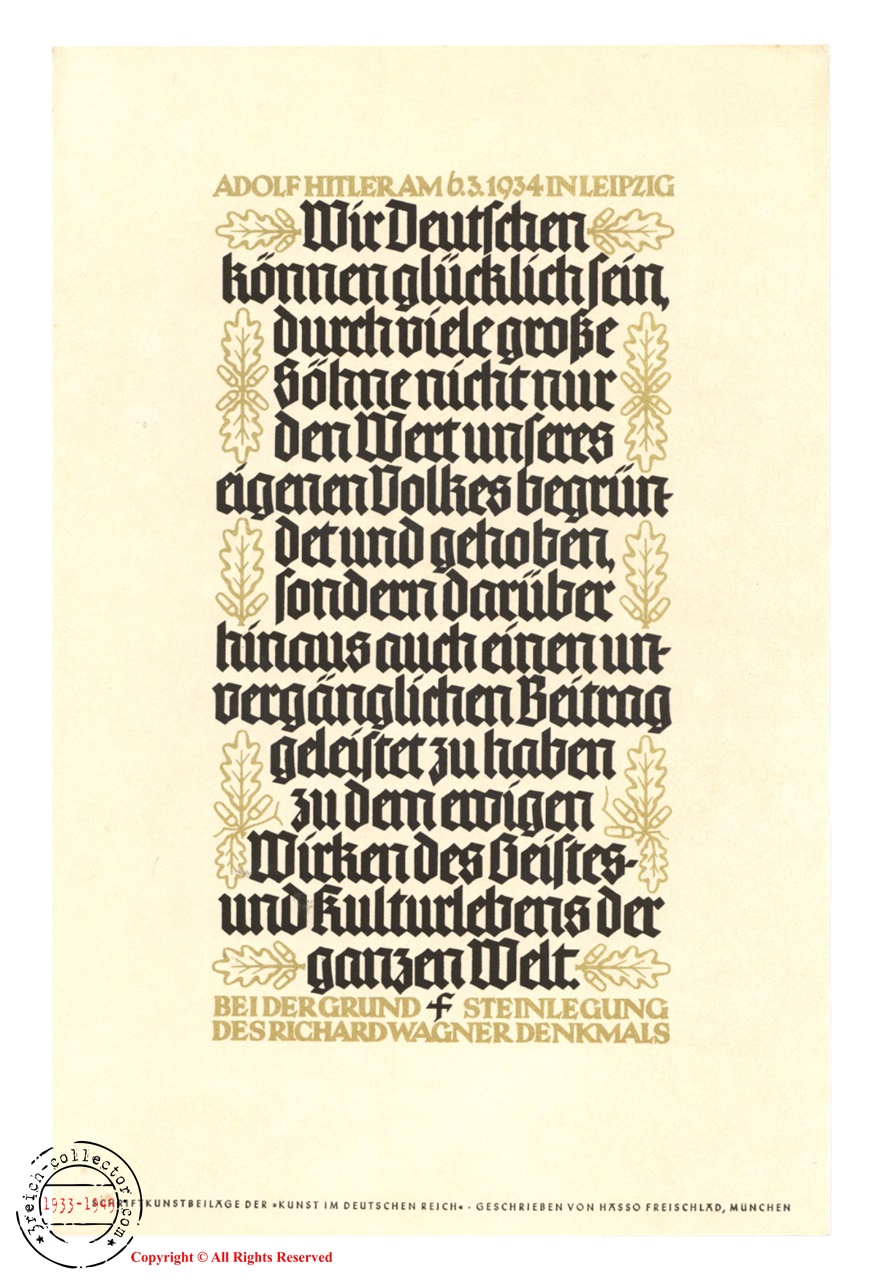 ADOLF HITLER AM 6.3.1934 IN LEIPZIG
Wir Deutschen
können glücklich sein,
durch viele große
Söhne nicht nur
den Wert unseres
eigenen Volkes begrün-
det und gehoben,
sondern darüber
hinaus auch einen un-
vergänglichen Beitrag
geleistet zu haben
zu dem ewigen
Wirken des Geistes-
und Kulturlebens der
ganzen Welt.
BEI DER GRUND STEINLEGUNG
DES RICHARD WAGNER DENKMALS
SCHRIFTKUNSTBEILAGE DER »KUNST IM DEUTSCHEN REICH« · GESCHRIEBEN VON HASSO FREISCHLAD, MÜNCHEN
3reich-collector.com
1933-1945
Copyright © All Rights Reserved